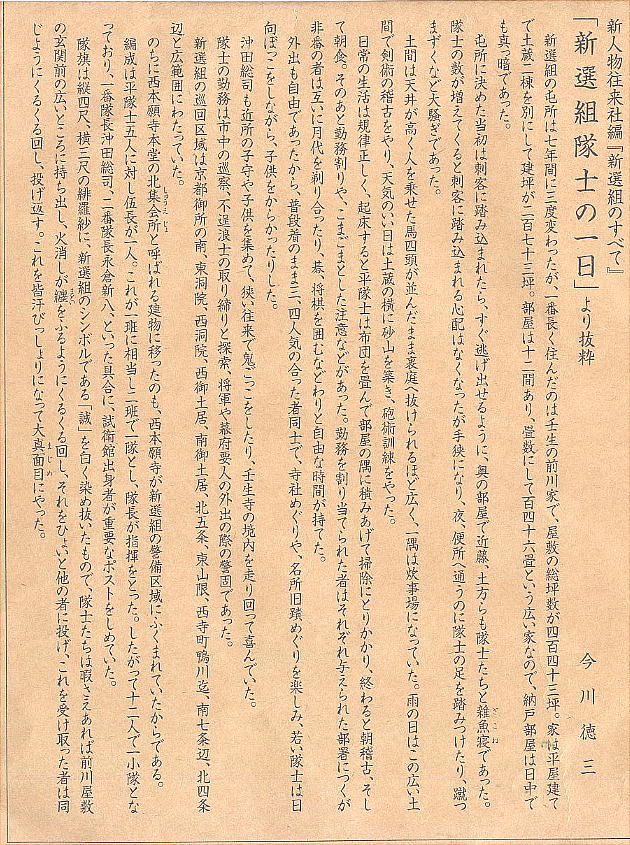 新人物往来社編『新選組のすべて』
「新選組隊士の一日」より抜粋
今川徳三
新選組の屯所は七年間に三度変わったが、一番長く住んだのは壬生の前川家で、屋敷の総坪数が四百四十三坪。家は平屋建て
で土蔵二棟を別にして建坪が二百七十三坪。部屋は十二間あり、畳数にして百四十六畳という広い家なので、納戸部屋は日中で
も真っ暗であった。
屯所に決めた当初は刺客に踏み込まれたら、すぐ逃げ出せるように、奥の部屋で近藤、土方らも隊士たちと雑魚寝であった。
隊士の数が増えてくると刺客に踏み込まれる心配はなくなったが手狭になり、夜、便所へ通うのに隊士の足を踏みつけたり、蹴つ
まずくなど大騒ぎであった。
土間は天井が高く人を乗せた馬四頭が並んだまま裏庭へ抜けられるほど広く、一隅は炊事場になっていた。雨の日はこの広い土
間で剣術の稽古をやり、天気のいい日は土蔵の横に砂山を築き、砲術訓練をやった。
日常の生活は規律正しく、起床すると平隊士は布団を畳んで部屋の隅に積みあげて掃除にとりかかり、終わると朝稽古、そし
て朝食。そのあと勤務割りや、こまごまとした注意などがあった。勤務を割り当てられた者はそれぞれ与えられた部署につくが
非番の者は互いに月代を剃り合ったり、碁、将棋を囲むなどわりと自由な時間が持てた。
外出も自由であったから、普段着のまま三、四人気の合った者同士で、寺社めぐりや、名所旧蹟めぐりを楽しみ、若い隊士は日
向ぼっこをしながら、子供をからかったりした。
沖田総司も近所の子守や子供を集めて、狭い往来で鬼ごっこをしたり、壬生寺の境内を走り回って喜んでいた。
隊士の勤務は市中の巡察、不逞浪士の取り締りと探索、将軍や幕府要人の外出の際の警固であった。
新選組の巡回区域は京都御所の南、東洞院、西洞院、西御土居、南御土居、北五条、東山限、西寺町鴨川迄、南七条辺、北四条
辺と広範囲にわたっていた。
のちに西本願寺本堂の北集会所と呼ばれる建物に移ったのも、西本願寺が新選組の警備区域にふくまれていたからである。
編成は平隊士五人に対し伍長が一人。これが一班に相当し二班で一隊とし、隊長が指揮をとった。したがって十二人で一小隊とな
っており、一番隊長沖田総司、二番隊長永倉新八、といった具合に、試衛館出身者が重要なポストをしめていた。
隊旗は縦四尺、横三尺の緋羅紗に、新選組のシンボルである「誠」を白く染め抜いたもので、隊士たちは暇さえあれば前川屋敷
の玄関前の広いところに持ち出し、火消しが纏をふるようにくるくる回し、それをひょいと他の者に投げ、これを受け取った者は同
じようにくるくる回し、投げ返す。これを皆汗びっしょりになって大真面目にやった。